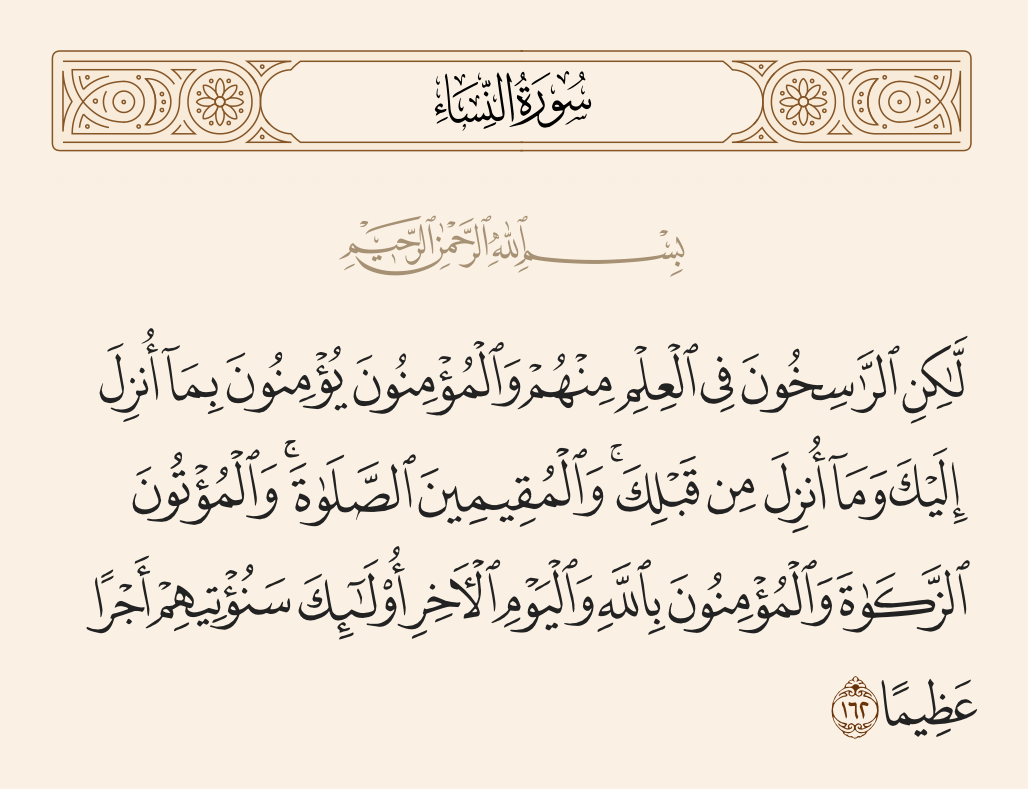 سُورَةُ النِّسَاءِ
بِسْمِ ٱللَّهِ ٱلرَّحْمَٰنِ ٱلرَّحِيمِ
لَّٰكِنِ ٱلرَّٰسِخُونَ فِى ٱلْعِلْمِ مِنْهُمْ وَٱلْمُؤْمِنُونَ يُؤْمِنُونَ بِمَآ أُنزِلَ
إِلَيْكَ وَمَآ أُنزِلَ مِن قَبْلِكَ ۚ وَٱلْمُقِيمِينَ ٱلصَّلَوٰةَ ۚ وَٱلْمُؤْتُونَ
ٱلزَّكَوٰةَ وَٱلْمُؤْمِنُونَ بِٱللَّهِ وَٱلْيَوْمِ ٱلْءَاخِرِ أُو۟لَٰٓئِكَ سَنُؤْتِيهِمْ أَجْرًا
عَظِيمًا ١٦٢